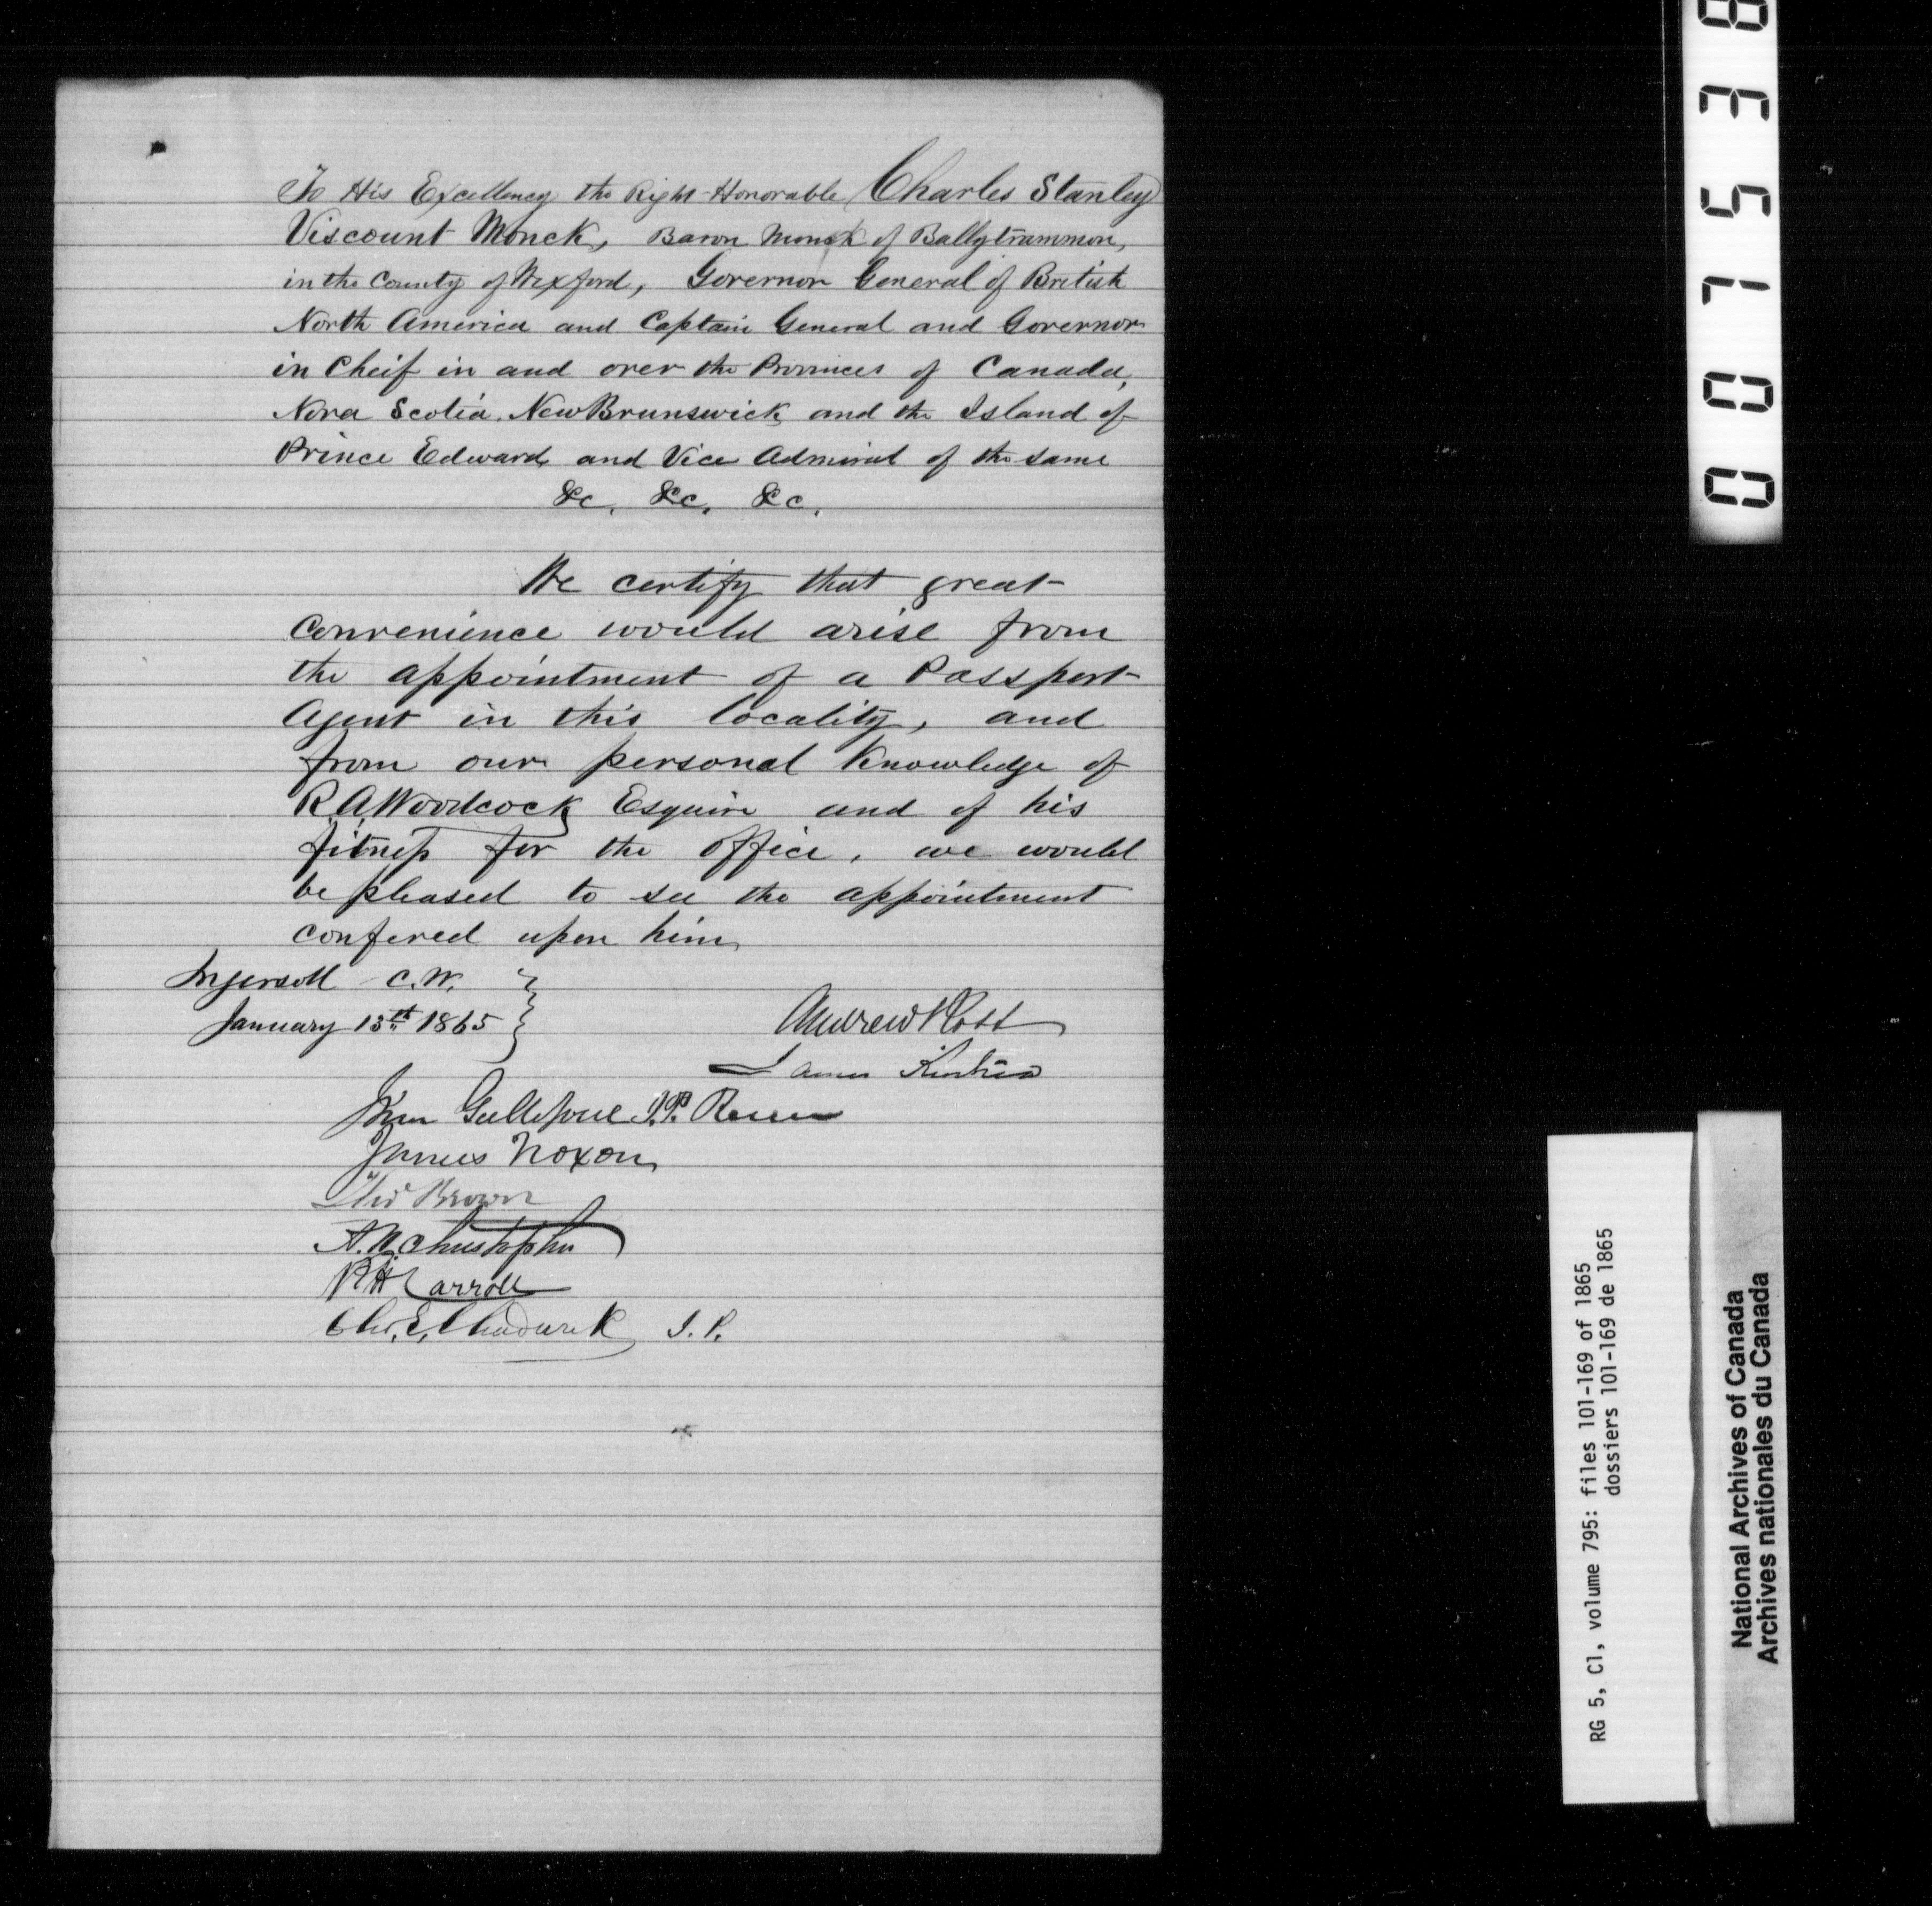 To His Excellency the Right Honorable Charles Stanley
Viscount Monck, Baron Monck of Ballytrammon,
in the County of Wexford, Governor General of British
North America and Captain General and Governor
in Cheif in and over the Provinces of Canada,
Nova Scotia, New Brunswick and the Island of
Prince Edward, and Vice Admiral of the same
&c, &c, &c.
We certify that great
convenience would arise from
the appointment of a Passport
Agent in this locality, and
from our personal knowledge of
R.A. Woodcock Esquire and of his
fitness for the office, we would
be pleased to see the appointment
confered upon him
Ingersoll C.W.
January 13th 1865
Andrew Ross
James
J.P.
James Noxon
Brown
A. Christopher
R H Carroll
Chs. E. Chadwick J.P.
0071538
RG 5, C1, volume 795: files 101-169 of 1865
dossiers 101-169 de 1865
National Archives of Canada
Archives nationales du Canada